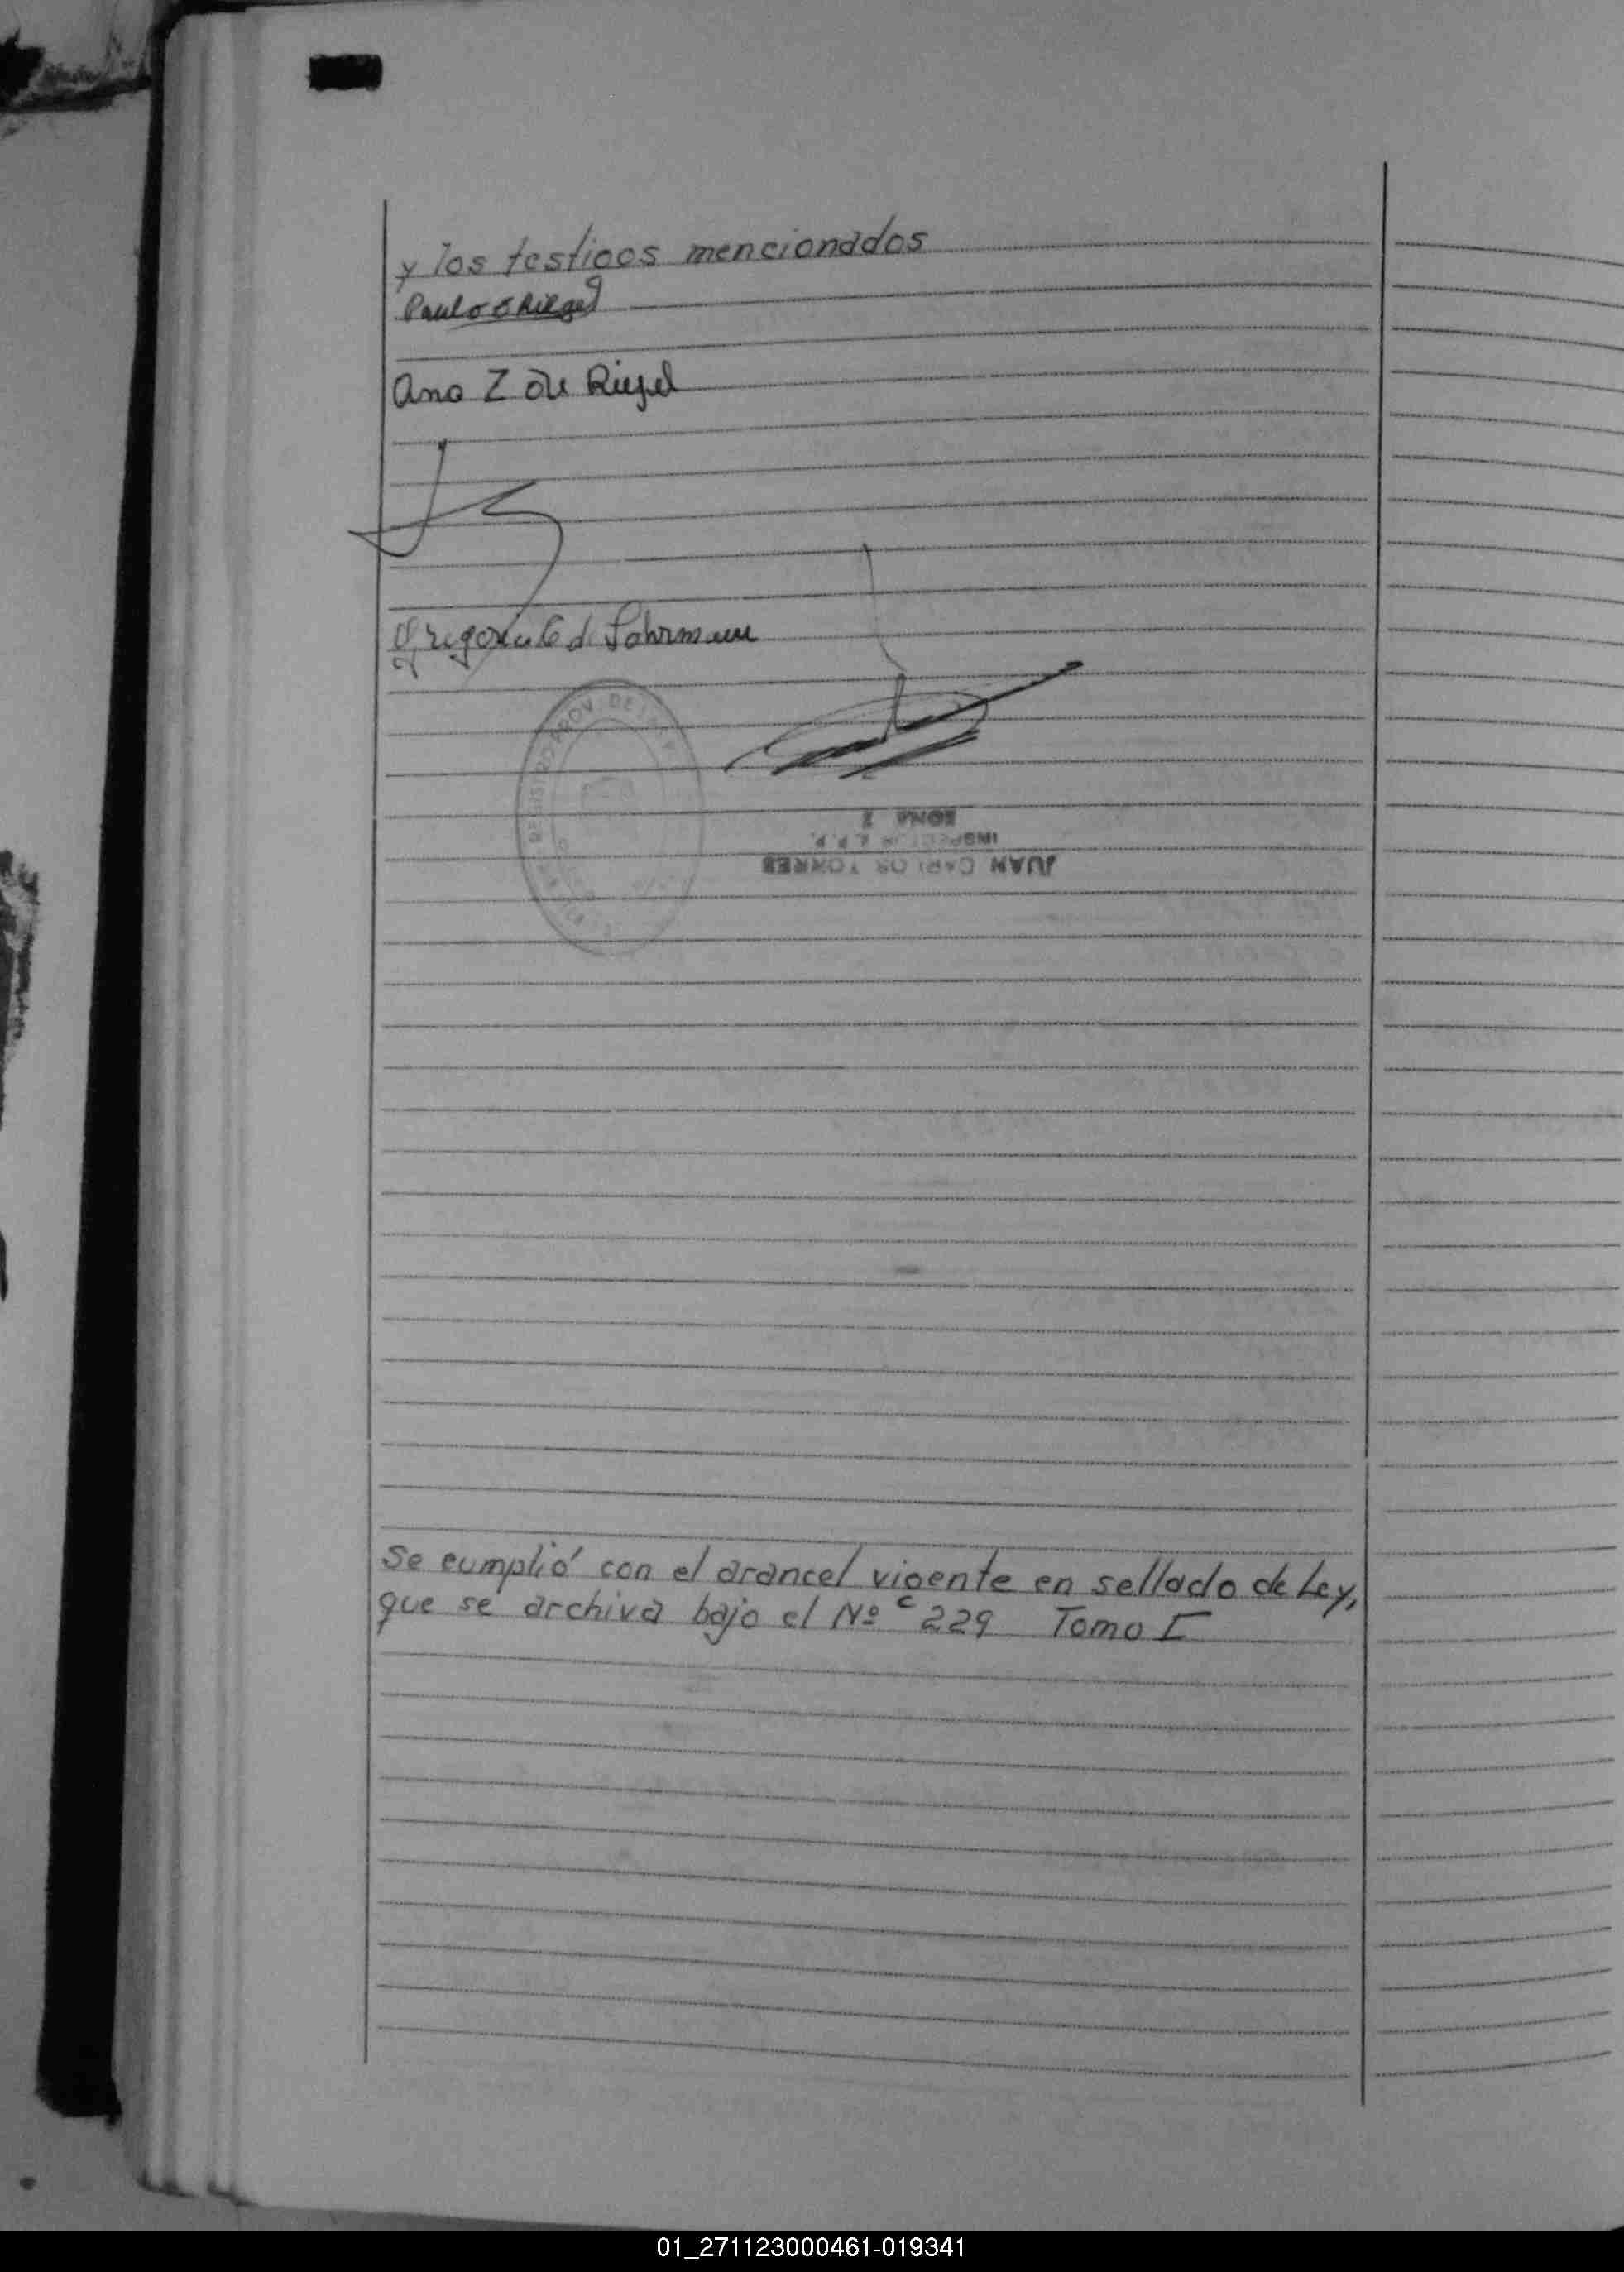 y los testigos mencionados
Paulo E Riegel
Ana Z de Riegel
de Fahrmann
REGISTRO PROV. DE LAS
ZONA 2
INSPECTOR R.P.P.
JUAN CARLOS TORRES
Se cumplió con el arancel vigente en sellado de Ley,
que se archiva bajo el Nº C 229 Tomo I
01_271123000461-019341